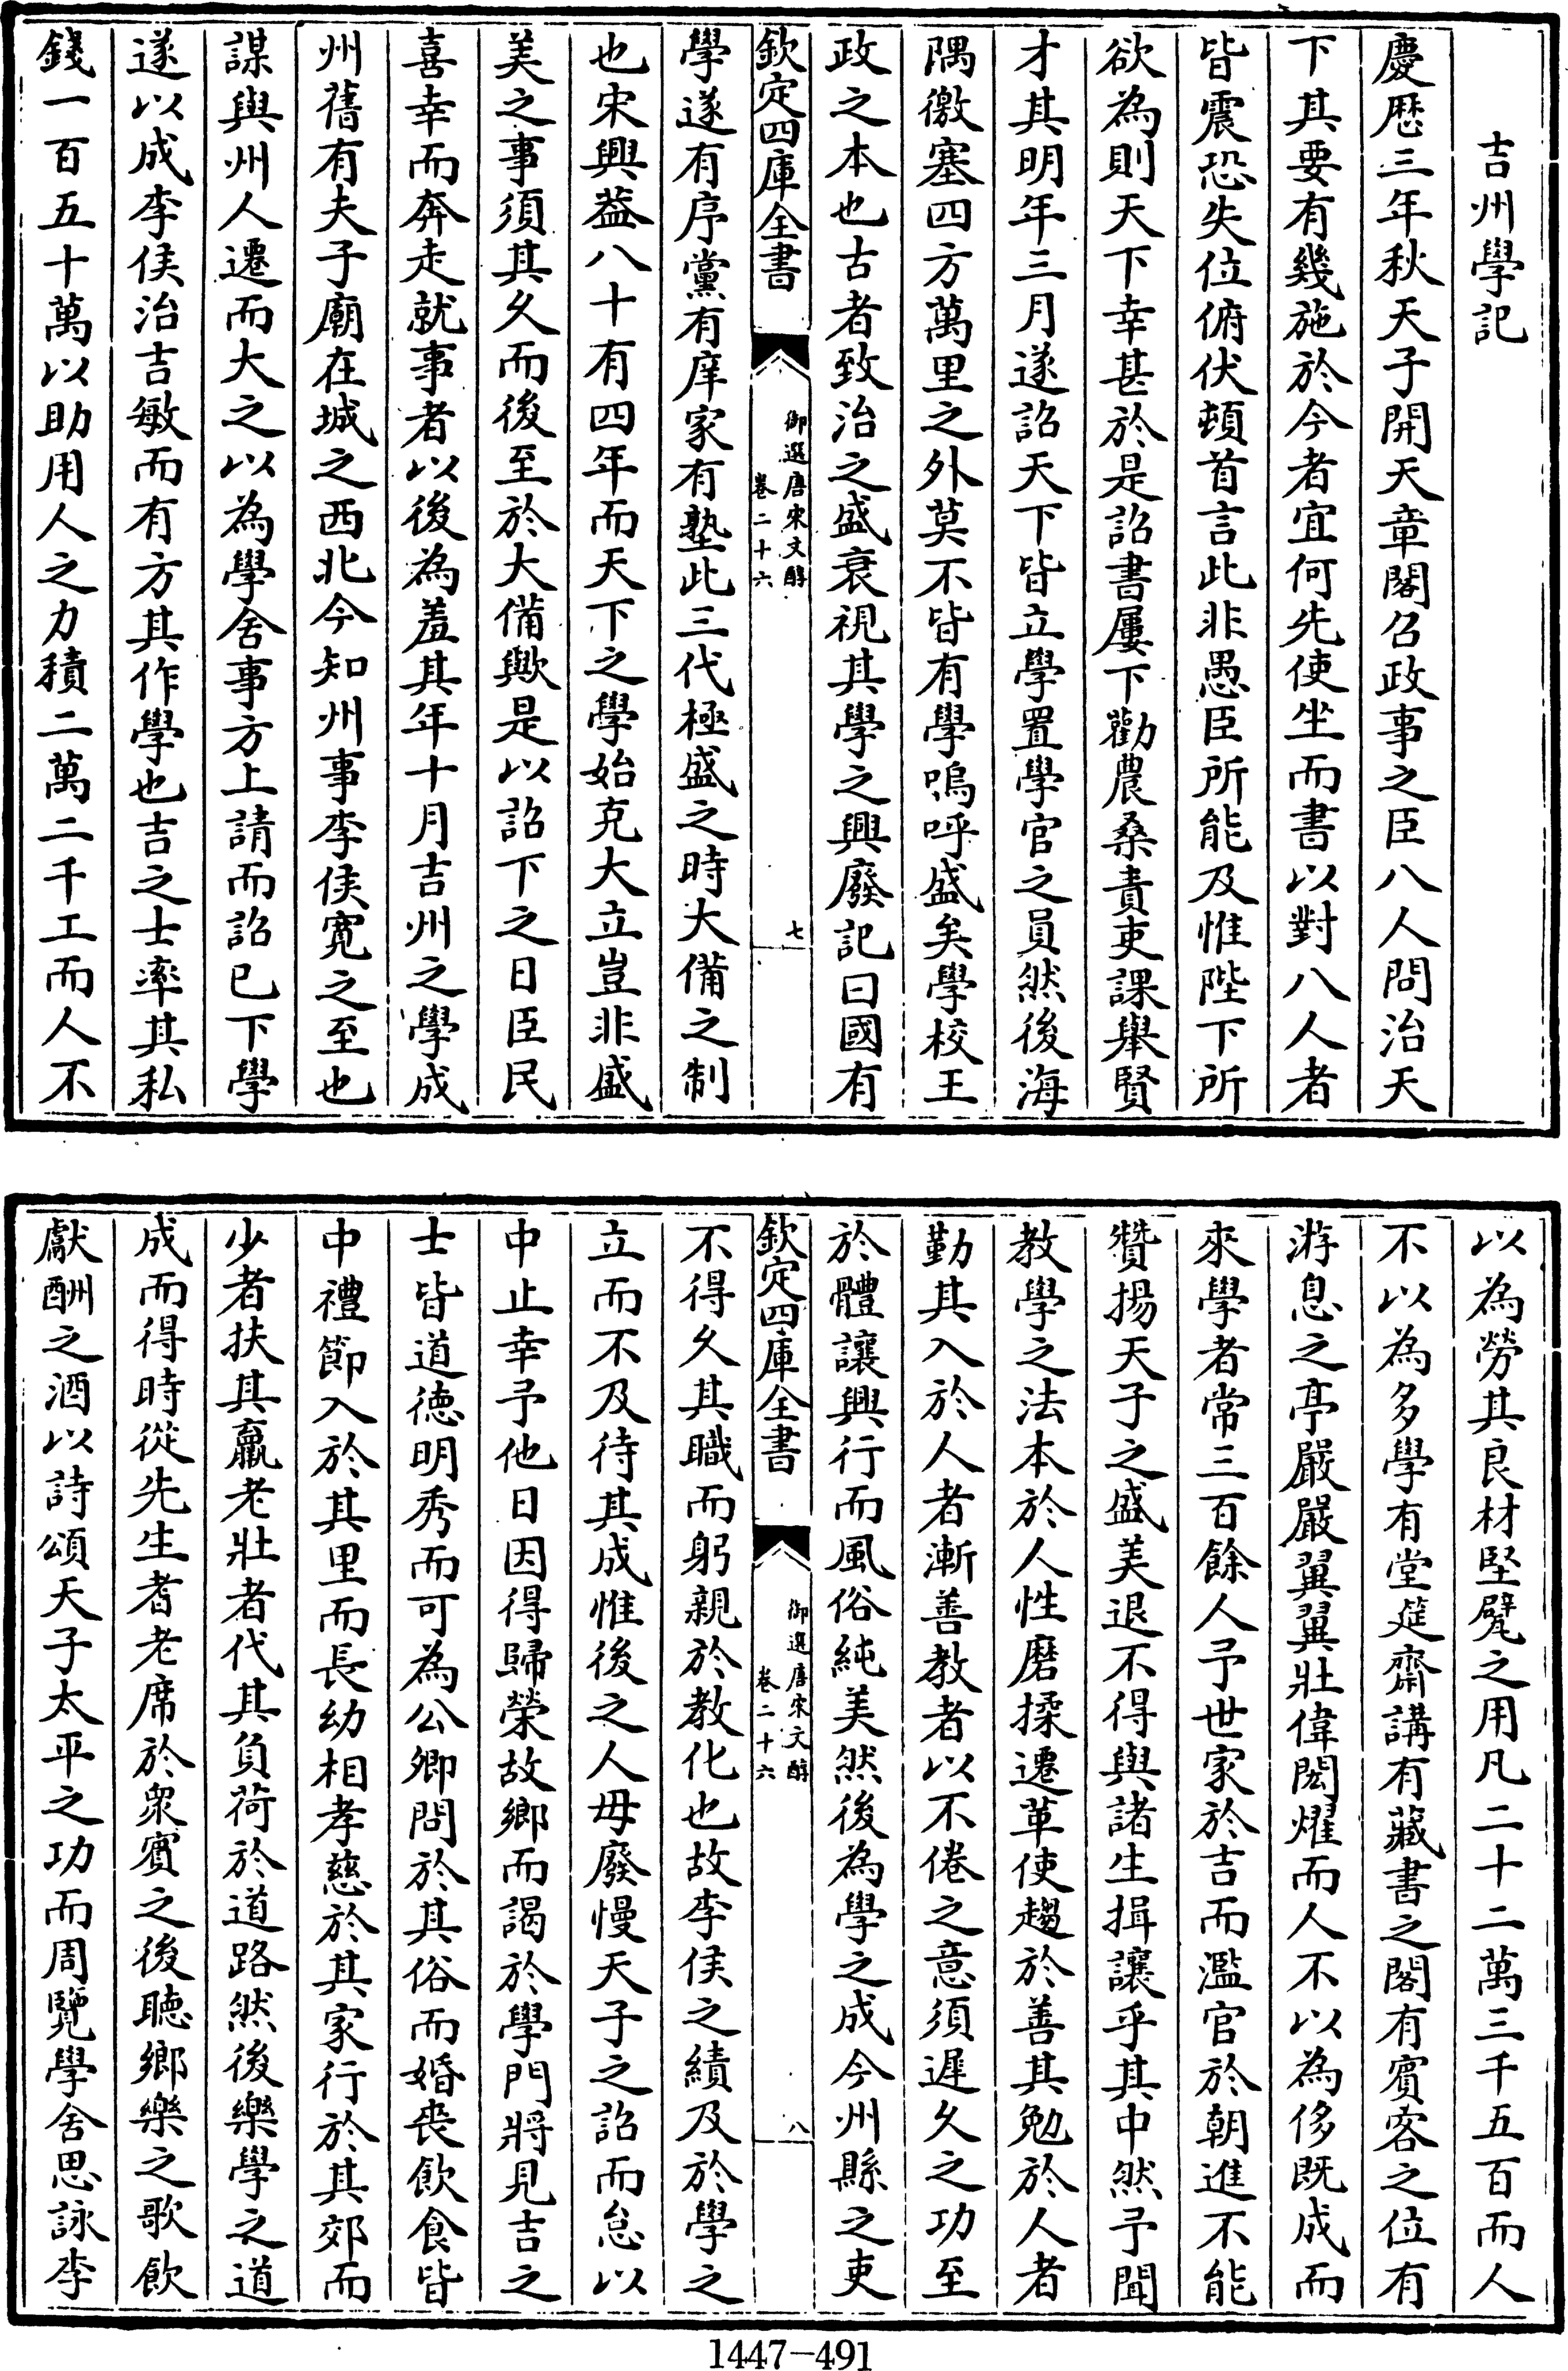 吉州學記
慶歴三年秋天子開天章閣召政事之臣八人問治天
下其要有幾施於今者宜何先使坐而書以對八人者
皆震恐失位俯伏頓首言此非愚臣所能及惟陛下所
欲為則天下幸甚於是詔書屢下勸農桑責吏課舉賢
才其明年三月遂詔天下皆立學置學官之員然後海
隅徼塞四方萬里之外莫不皆有學嗚呼盛矣學校王
政之本也古者致治之盛衰視其學之興廢記曰國有
欽定四庫全書
御選唐宋文醇
卷二十六
七
學遂有序黨有庠家有塾此三代極盛之時大備之制
也宋興葢八十有四年而天下之學始克大立豈非盛
美之事須其久而後至於大備歟是以詔下之日臣民
喜幸而奔走就事者以後為羞其年十月吉州之學成
州舊有夫子廟在城之西北今知州事李侯寛之至也
謀與州人遷而大之以為學舍事方上請而詔已下學
遂以成李侯治吉敏而有方其作學也吉之士率其私
錢一百五十萬以助用人之力積二萬二千工而人不
以為勞其良材堅甓之用凡二十二萬三千五百而人
不以為多學有堂筵齋講有藏書之閣有賓客之位有
游息之亭嚴嚴翼翼壯偉閎耀而人不以為侈既成而
來學者常三百餘人予世家於吉而濫官於朝進不能
贊揚天子之盛美退不得與諸生揖讓乎其中然予聞
教學之法本於人性磨揉遷革使趨於善其勉於人者
勤其入於人者漸善教者以不倦之意須遲久之功至
於體讓興行而風俗純美然後為學之成今州縣之吏
欽定四庫全書
御選唐宋文醇
卷二十六
八
不得久其職而躬親於教化也故李侯之績及於學之
立而不及待其成惟後之人毋廢慢天子之詔而怠以
中止幸予他日因得歸榮故鄉而謁於學門將見吉之
士皆道德明秀而可為公卿問於其俗而婚喪飲食皆
中禮節入於其里而長幼相孝慈於其家行於其郊而
少者扶其羸老壯者代其負荷於道路然後樂學之道
成而得時從先生耆老席於衆賓之後聽鄉樂之歌飲
獻酬之酒以詩頌天子太平之功而周覽學舍思詠李
1447-491